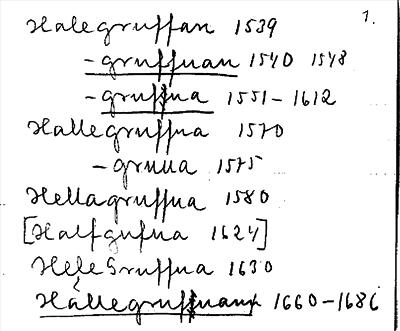 Halegruffan 1539 1.
-gruffuan 1540 1548
-gruffua 1551-1612
Hallegruffua 1570
-gruua 1575
Hellagruffua 1580
[Halfgufua 1624]
HeleGruffua 1630
Hållegruffuan 1660-1686